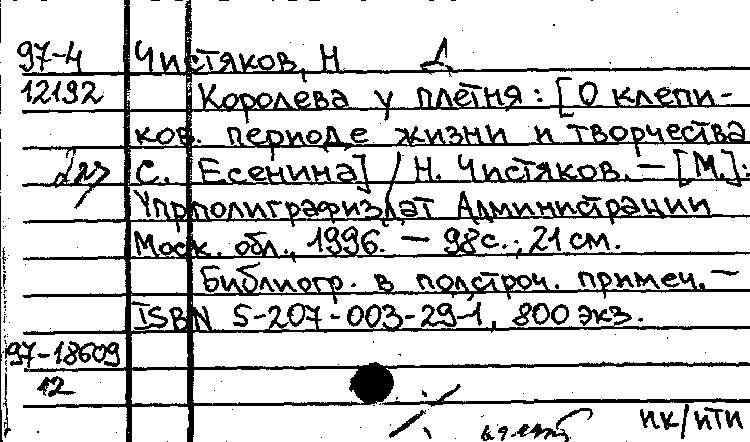 97-4 Чистяков, Н Д
12192 Королева у плетня: [О клепи-
ков. периоде жизни и творчества
С. Есенина] / Н. Чистяков. — [М.]:
Упрполиграфиздат Администрации
Моск. обл., 1996. — 98с.; 21 см.
Библиогр. в подстроч. примеч. —
ISBN 5-207-003-29-1, 800 экз.
97-18609
12
пк/пти